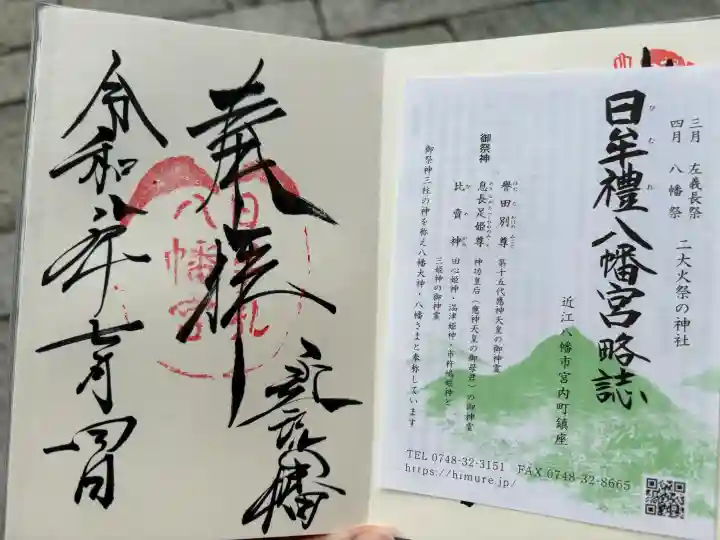 奉拝
近江八幡
令和八年七月四日
日牟禮八幡宮
三月 左義長祭
四月 八幡祭
二大火祭の神社
日牟禮八幡宮略誌
ひむれ
近江八幡市宮内町鎮座
御祭神
誉田別尊 第十五代應神天皇の御神霊
息長足姫尊 神功皇后(應神天皇の御母君)の御神霊
比賣神 田心姫神・湍津姫神・市杵嶋姫神と
三姫神の御神霊
御祭神三柱の神を称え八幡大神・八幡さまと奉称しています
TEL 0748-32-3151 FAX 0748-32-8665
https://himure.jp/